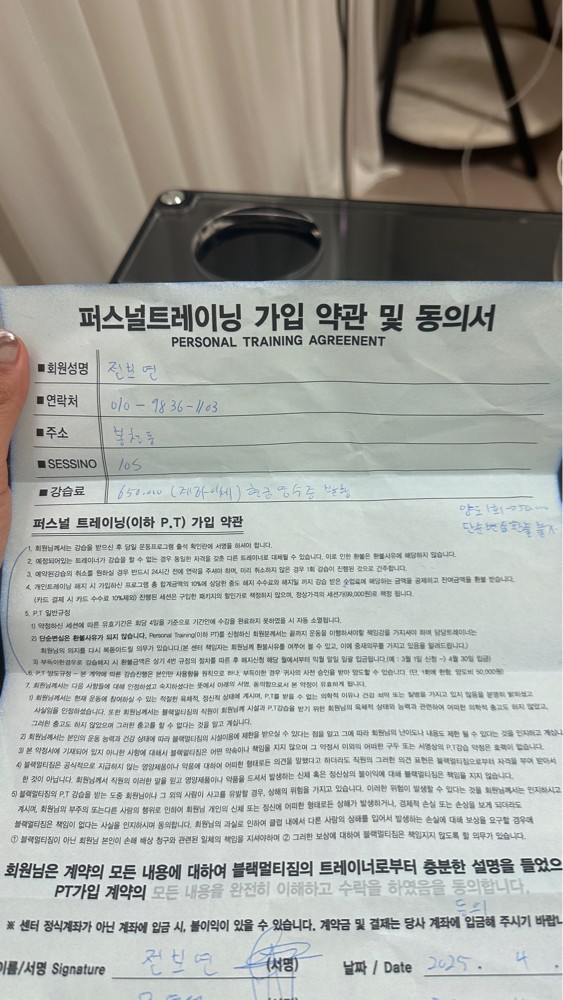 퍼스널트레이닝 가입 약관 및 동의서
PERSONAL TRAINING AGREEMENT
■ 회원성명
■ 연락처 010-9836-1103
■ 주소 봉천동
■ SESSINO 10S
■ 강습료 650.000 (계좌이체) 현금영수증 발행
양도 1회
단순변심 환불 불가
퍼스널 트레이닝(이하 P.T) 가입 약관
1. 회원님께서는 강습을 받으신 후 당일 운동프로그램 출석 확인란에 서명을 하셔야 합니다.
2. 예정되어있는 트레이너가 강습을 할 수 없는 경우 동일한 자격을 갖춘 다른 트레이너로 대체될 수 있습니다. 이로 인한 환불은 환불사유에 해당하지 않습니다.
3. 예약된강습의 취소를 원하실 경우 반드시 24시간 전에 연락을 주셔야 하며, 미리 취소하지 않은 경우 1회 강습이 진행된 것으로 간주합니다.
4. 개인트레이닝 해지 시 가입하신 프로그램 총 합계금액의 10%에 상당한 중도 해지 수수료와 해지일 까지 강습 받은 수업료에 해당하는 금액을 공제하고 잔여금액을 환불 받습니다.
(카드 결제 시 카드 수수료 10%제외) 진행된 세션은 구입한 패키지의 할인가로 책정하지 않으며, 정상가격의 세션가(99,000원)로 책정 됩니다.
5. P.T 일반규정
1) 약정하신 세션에 따른 유효기간은 회당 4일을 기준으로 기간안에 수강을 완료하지 못하였을 시 자동 소멸됩니다.
2) 단순변심은 환불사유가 되지 않습니다. Personal Training(이하 PT)를 신청하신 회원분께서는 끝까지 운동을 이행하셔야할 책임감을 가지셔야 하며 담당트레이너는
회원님의 의지를 다시 복돋아드릴 의무가 있습니다.(본 센터 책임자는 회원님께 환불사유를 여쭈어 볼 수 있고, 이에 중재의무를 가지고 있음을 알려드립니다.)
3) 부득이한경우로 강습해지 시 환불금액은 상기 4번 규정의 절차를 따른 후 해지신청 해당 월에서부터 익월 말일 일괄 입금됩니다.(예 : 3월 1일 신청 -> 4월 30일 입금)
6. P.T 양도규정 - 본 계약에 따른 강습진행은 본인만 사용함을 원칙으로 하나, 부득이한 경우 귀사의 사전 승인을 받아 양도할 수 있습니다. (단, 1회에 한함, 양도비 50,000원)
7. 회원님께서는 다음 사항들에 대해 인정하셨고 숙지하셨다는 뜻에서 아래의 서명, 동의함으로서 본 약정이 유효하게 됩니다.
1) 회원님께서는 현재 운동에 참여하실 수 있는 적절한 육체적, 정신적 상태에 계시며, P.T를 받을 수 없는 의학적 이유나 건강 쇠약 또는 질병을 가지고 있지 않음을 분명히 밝히셨고,
사실임을 인정하셨습니다. 또한 회원님께서는 블랙멀티짐의 직원이 회원께 시설과 P.T강습을 받기 위한 회원님의 육체적 상태와 능력과 관련하여 어떠한 의학적 충고도 하지 않았고,
그러한 충고도 하지 않았으며 그러한 충고를 할 수 없다는 것을 알고 계십니다.
2) 회원님께서는 본인의 운동 능력과 건강 상태에 따라 블랙멀티짐의 시설이용에 제한을 받으실 수 있다는 점을 알고 그에 따라 회원님의 난이도나 내용도 제한 될 수 있다는 것을 인지하고
3) 본 약정서에 기재되어 있지 아니한 사항에 대해서 블랙멀티짐은 어떤 약속이나 책임을 지지 않으며 그 약정서 이외의 어떠한 구두 또는 서명상의 P.T강습 약정은 효력이 없습니다.
4) 블랙멀티짐은 공식적으로 지급하지 않는 영양제품이나 약품에 대하여 어떠한 형태로든 의견을 말했다고 하더라도 직원의 그러한 의견 표현은 블랙멀티짐으로부터 자격을 부여 받아서
한 것이 아닙니다. 회원님께서 직원의 이러한 말을 믿고 영양제품이나 약품을 드셔서 발생하는 신체 혹은 정신상의 불이익에 대해 블랙멀티짐은 책임을 지지 않습니다.
5) 블랙멀티짐의 P.T 강습을 받는 도중 회원님이나 그 외의 사람이 사고를 유발할 경우, 상해의 위험을 가지고 있습니다. 이러한 위험이 발생할 수 있다는 것을 회원님께서는 인지하시고
계시며, 회원님의 부주의 또는다른 사람의 행위로 인하여 회원님 개인의 신체 또는 정신에 어떠한 형태로든 상해가 발생하거나, 경제적 손실 또는 손상을 보게 되더라도
블랙멀티짐은 책임이 없다는 사실을 인지하시며 동의합니다. 회원님의 과실로 인하여 클럽 내에서 다른 사람의 상해를 입어서 발생하는 손실에 대해 보상을 요구할 경우에
① 블랙멀티짐이 아닌 회원님 본인이 손해 배상 청구와 관련된 일체의 책임을 지셔야하며 ② 그러한 보상에 대하여 블랙멀티짐은 책임지지 않도록 할 의무가 있습니다.
회원님은 계약의 모든 내용에 대하여 블랙멀티짐의 트레이너로부터 충분한 설명을 들었으
PT가입 계약의 모든 내용을 완전히 이해하고 수락을 하였음을 동의합니다.
동의
※ 센터 정식계좌가 아닌 계좌에 입금 시, 불이익이 있을 수 있습니다. 계약금 및 결제는 당사 계좌에 입금해 주시기 바랍니
이름/서명 Signature (서명) 날짜 / Date 2025. 4.